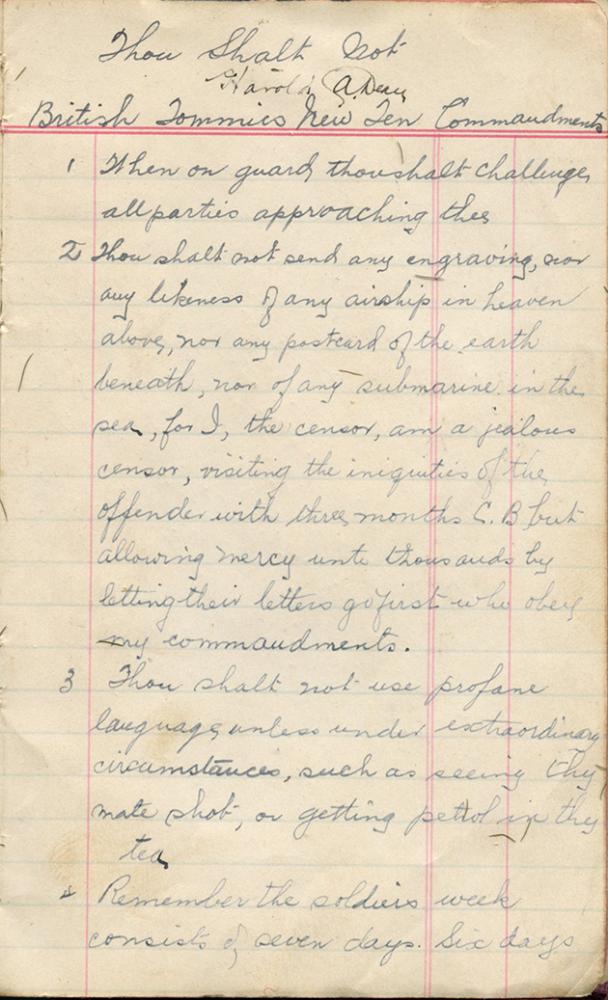 Thou Shalt Not
Harold A Dean
British Tommies New Ten Commandments
1 When on guard thou shalt challenge
all parties approaching thee
2 Thou shalt not send any engraving, nor
any likeness of any airship in heaven
above, nor any postcard of the earth
beneath, nor of any submarine in the
sea, for I, the censor, am a jealous
censor, visiting the iniquities of the
offender with three months C. B but
allowing mercy unto thousands by
letting their letters go first who obey
my commandments.
3 Thou shalt not use profane
language unless under extraordinary
circumstances, such as seeing thy
mate shot, or getting pettol in thy
tea
4 Remember the soldiers week
consists of seven days. Six days